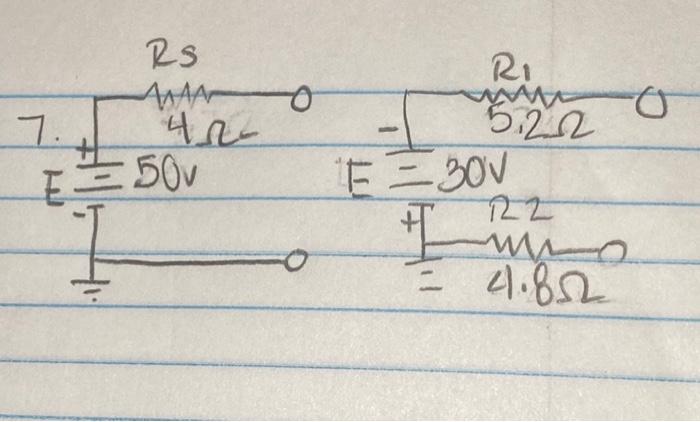 Rs R1
7. 4Ω 5.2Ω
+ -
E 50v E 30V
- + R2
4.8Ω